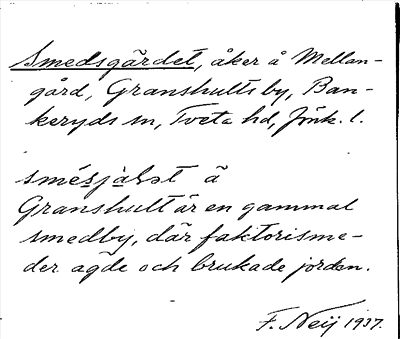 Smedsgärdet, åker å Mellan-
gård, Granshults by, Ban-
keryds sn, Tveta hd, Jönk. l.
Granshult är en gammal
smedby, där faktorisme-
der ägde och brukade jorden.
F. Neij 1937.